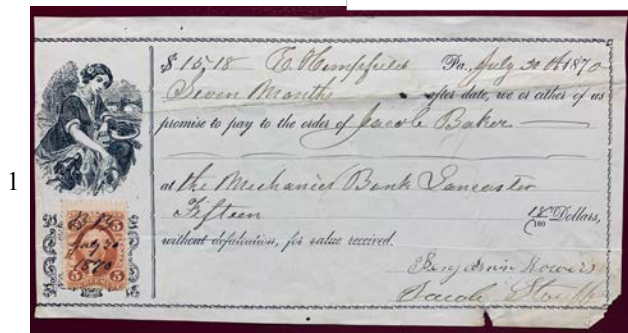 1
$ 15.18 E. Hempfield Pa. July 30th 1870
Seven Months after date, we or either of us
promise to pay to the order of Jacob Baker
at the Mechanics Bank Lancaster
Fifteen 18/100 Dollars,
without defalcation, for value received.
Benjamin
Jacob
5 5
July 30
1870